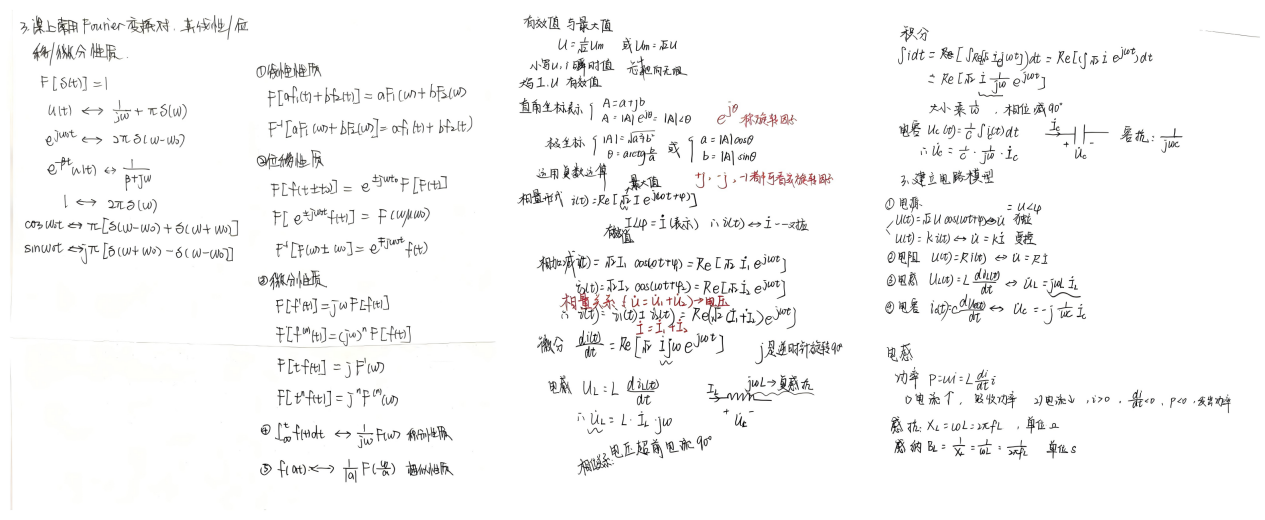 3. 课上常用 Fourier 变换对. 其线性/位
移/微分性质.
F[δ(t)] = 1
u(t) ↔ 1/jω + πδ(ω)
e^{jω₀t} ↔ 2πδ(ω-ω₀)
e^{-βt}u(t) ↔ 1/(β+jω)
1 ↔ 2πδ(ω)
cosω₀t ↔ π[δ(ω-ω₀) + δ(ω+ω₀)]
sinω₀t ↔ jπ[δ(ω+ω₀) - δ(ω-ω₀)]
①线性性质
F[af₁(t)+bf₂(t)] = aF₁(ω)+bF₂(ω)
F⁻¹[aF₁(ω)+bF₂(ω)] = af₁(t)+bf₂(t)
②位移性质
F[f(t±t₀)] = e^{±jωt₀}F[f(t)]
F[e^{±jω₀t}f(t)] = F(ω∓ω₀)
F⁻¹[F(ω±ω₀)] = e^{∓jω₀t}f(t)
③微分性质
F[f'(t)] = jωF[f(t)]
F[f⁽ⁿ⁾(t)] = (jω)ⁿF[f(t)]
F[tf(t)] = jF'(ω)
F[tⁿf(t)] = jⁿF⁽ⁿ⁾(ω)
④ ∫_{-∞}^{t} f(t)dt ↔ 1/jω F(ω) 积分性质
⑤ f(at) ↔ 1/|a| F(ω/a) 相似性质
有效值与最大值
U = 1/√2 Um 或 Um = √2 U
小写u, i 瞬时值
大写 I. U 有效值
直角坐标表示 { A = a+jb
A = |A|e^{jθ} = |A|∠θ
e^{jθ} 称旋转因子
极坐标 { |A| = √(a²+b²)
θ = arctg b/a
或 { a = |A|cosθ
b = |A|sinθ
运用复数运算
+j, -j, -1 都可看成旋转因子
最大值
相量形式 i(t) = Re[√2 I e^{j(ωt+φ)}]
I∠φ = İ (表示) ∴ i(t) ↔ İ 一一对应
有效值
相加减 i₁(t) = √2 I₁ cos(ωt+φ₁) = Re[√2 İ₁ e^{jωt}]
i₂(t) = √2 I₂ cos(ωt+φ₂) = Re[√2 İ₂ e^{jωt}]
相量关系 (U̇ = U̇₁+U̇₂) → 电压
∴ i(t) = i₁(t) ± i₂(t) = Re(√2 (İ₁+İ₂)e^{jωt})
İ = İ₁+İ₂
微分 di(t)/dt = Re[√2 İ jω e^{jωt}]
j 是逆时针旋转90°
电感 U_L = L di_L(t)/dt
I_L
jωL → 复感抗
+ U̇_L -
∴ U̇_L = L·İ_L·jω
相位关系: 电压超前电流 90°
积分
∫idt = Re[∫√2 İ e^{jωt}]dt = Re[∫√2 İ e^{jωt}]dt
= Re[√2 İ 1/jω e^{jωt}]
相位减90°
电容 U_c(t) = 1/C ∫i(t)dt
İ_c
+ U̇_c -
容抗: 1/jωc
∴ U̇_c = 1/C · 1/jω · İ_c
3. 建立电路模型
①电源
= U∠φ
U(t) = √2 U cos(ωt+φ) ↔ U̇ 独立
U(t) = ki(t) ↔ U̇ = kİ 受控
②电阻 U(t) = Ri(t) ↔ U̇ = Rİ
③电感 U_L(t) = L di_L(t)/dt ↔ U̇_L = jωL İ_L
④电容 i(t) = C dU(t)/dt ↔ U̇_c = -j 1/ωc İ_c
电感
功率 P = ui = L di/dt i
1) 电流↑, 吸收功率 2) 电流↓, i>0, di/dt<0, P<0, 发出功率
感抗: X_L = ωL = 2πfL, 单位 Ω
感纳 B_L = 1/X_L = 1/ωL = 1/2πfL 单位 S